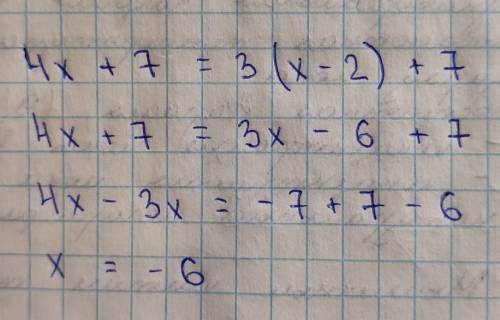 4x + 7 = 3(x - 2) + 7
4x + 7 = 3x - 6 + 7
4x - 3x = -7 + 7 - 6
x = -6